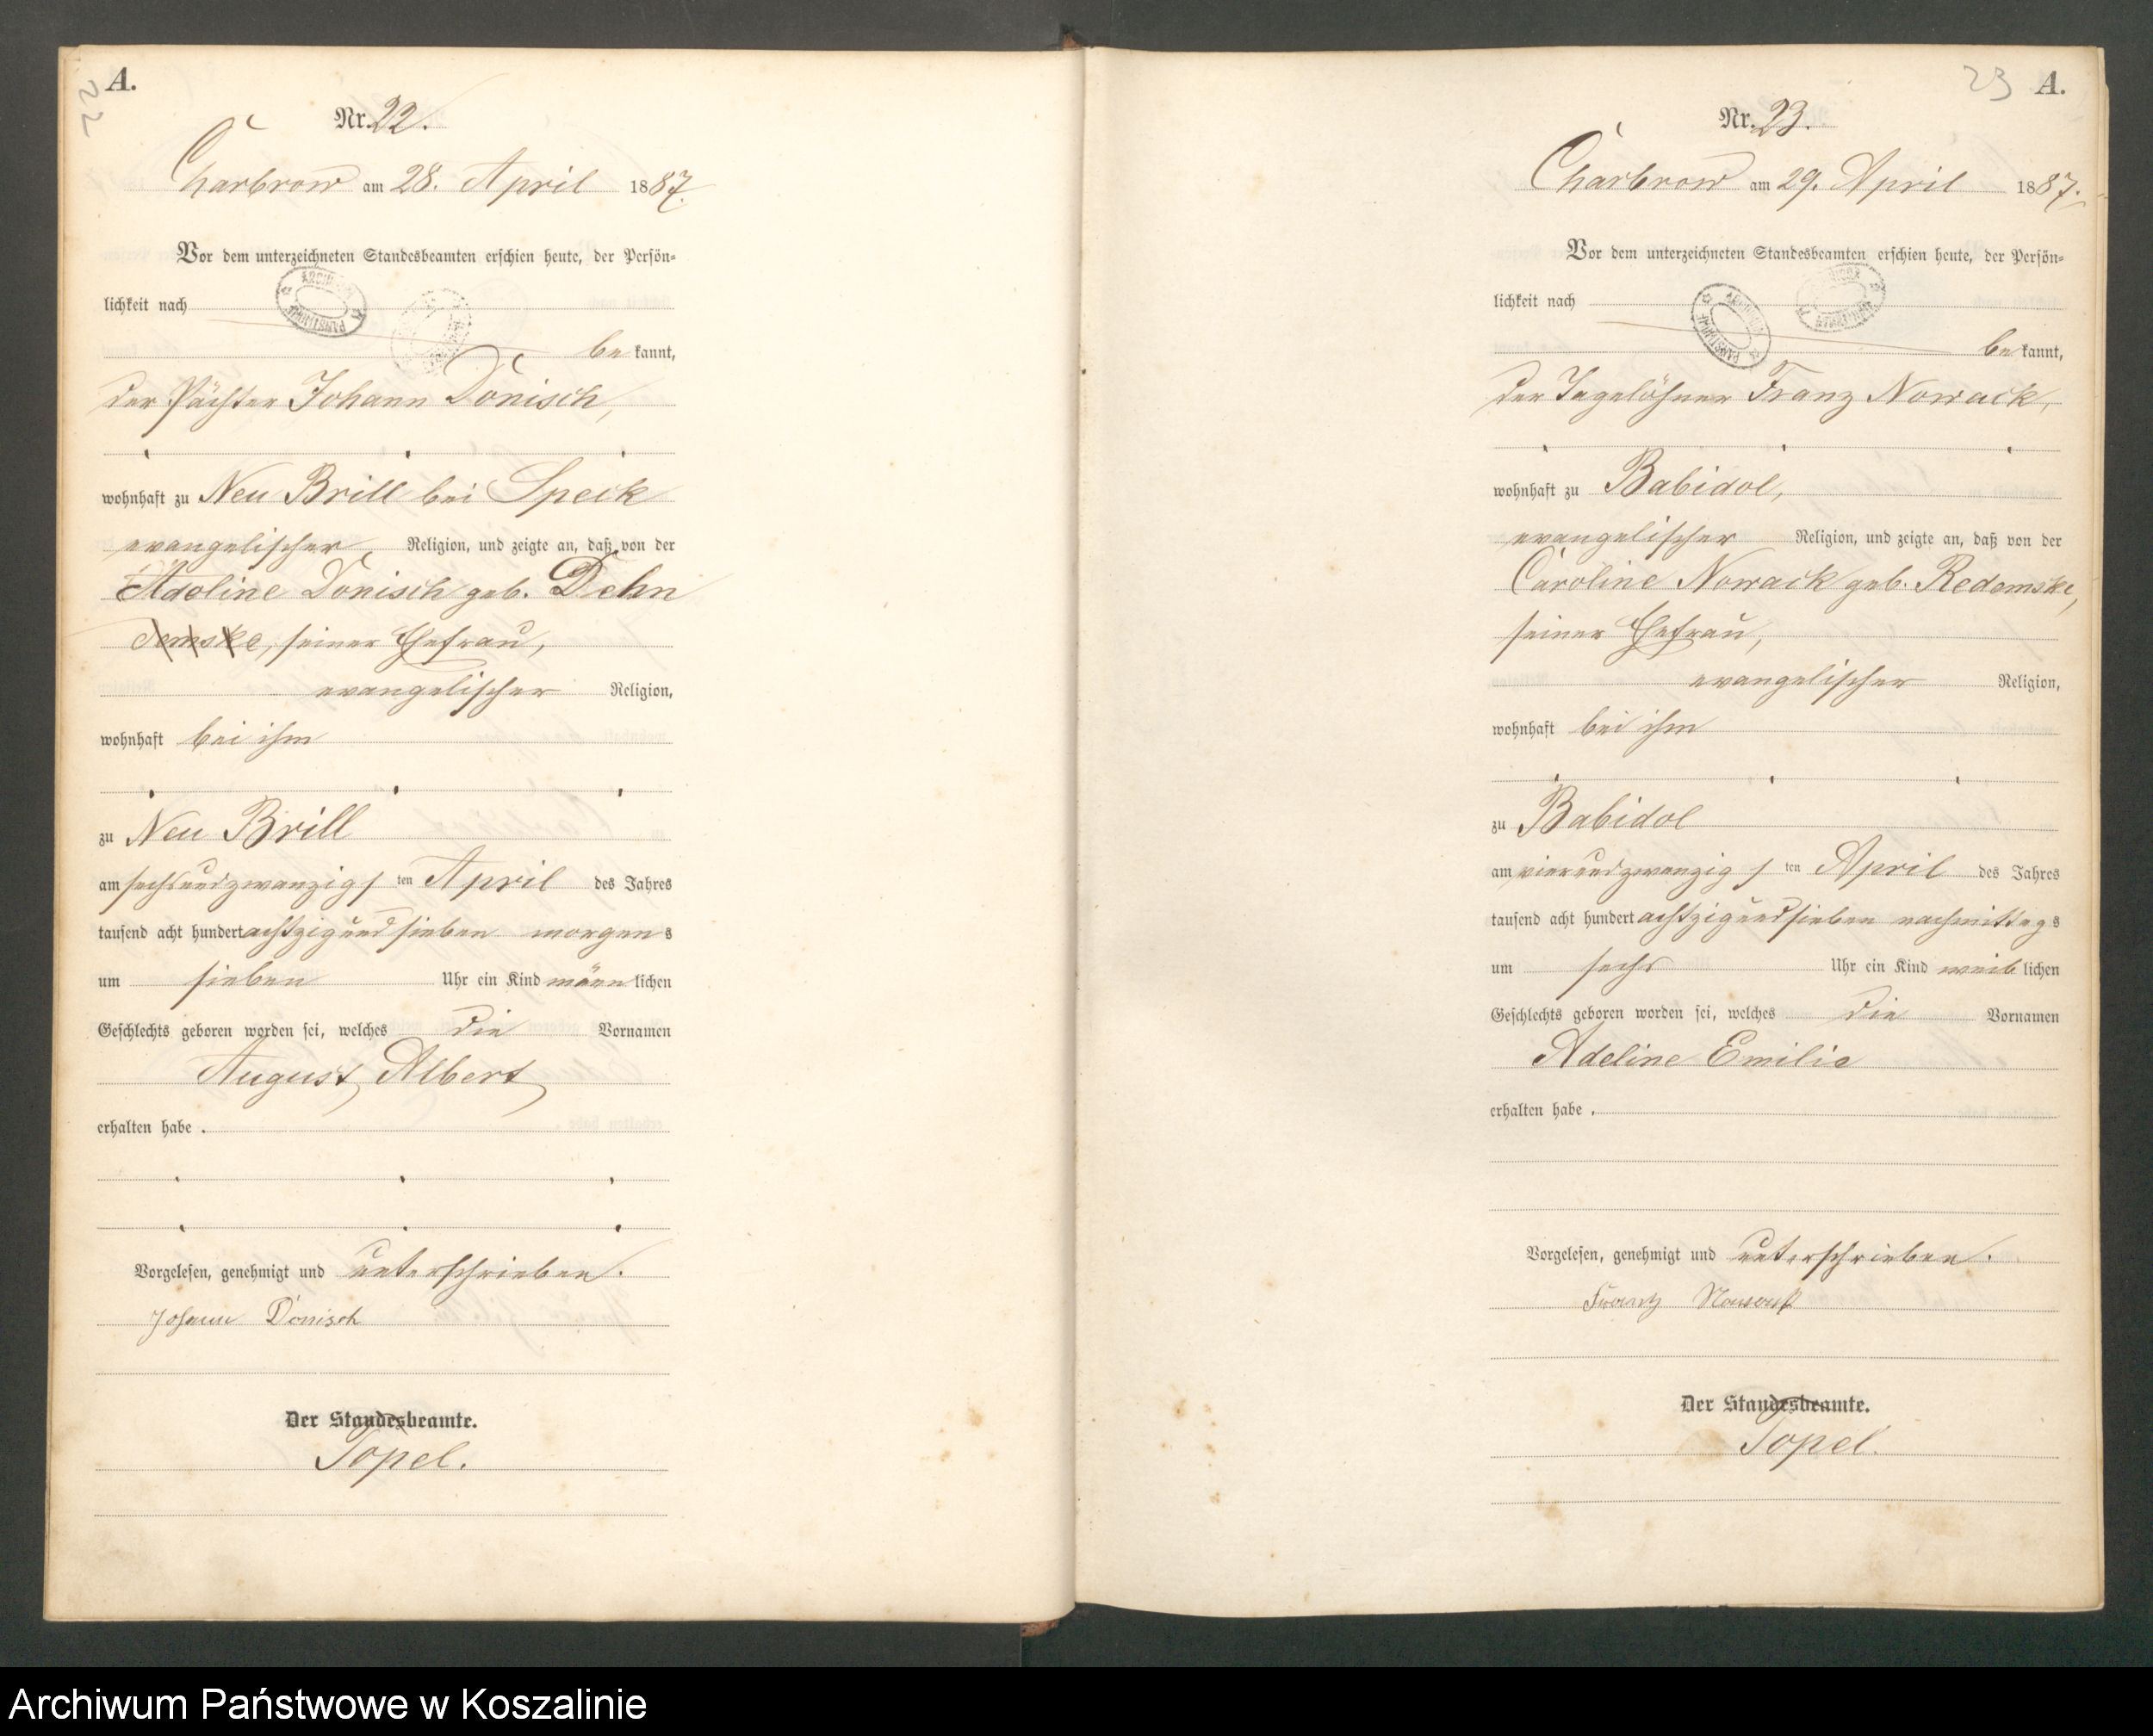 22
A.
Nr. 22.
Charbrow am 28. April 1887.
Vor dem unterzeichneten Standesbeamten erschien heute, der Persön-
lichkeit nach
be kannt,
der Pächter Johann Dönisch,
wohnhaft zu Neu Brill bei Speck
evangelischer Religion, und zeigte an, daß von der
Adeline Dönisch geb. Dehn
seiner Ehefrau,
evangelischer Religion,
wohnhaft bei ihm
zu Neu Brill
am sechsundzwanzig ten April des Jahres
tausend acht hundert achtzig und sieben morgen s
um sieben Uhr ein Kind männ lichen
Geschlechts geboren worden sei, welches die Vornamen
August Albert
erhalten habe .
Vorgelesen, genehmigt und unterschrieben.
Johann Dönisch
Der Standesbeamte.
Topel.
23
A.
Nr. 23.
Charbrow am 29. April 1887.
Vor dem unterzeichneten Standesbeamten erschien heute, der Persön-
lichkeit nach
be kannt,
der Tagelöhner Franz Nowack,
wohnhaft zu Babidol,
evangelischer Religion, und zeigte an, daß von der
Caroline Nowack geb. Redemske,
seiner Ehefrau,
evangelischer Religion,
wohnhaft bei ihm
zu Babidol
am vierundzwanzig ten April des Jahres
tausend acht hundert achtzig und sieben nachmittag s
um sechs Uhr ein Kind weib lichen
Geschlechts geboren worden sei, welches die Vornamen
Adeline Emilie
erhalten habe .
Vorgelesen, genehmigt und unterschrieben.
Frantz Nowack
Der Standesbeamte.
Topel.
Archiwum Państwowe w Koszalinie